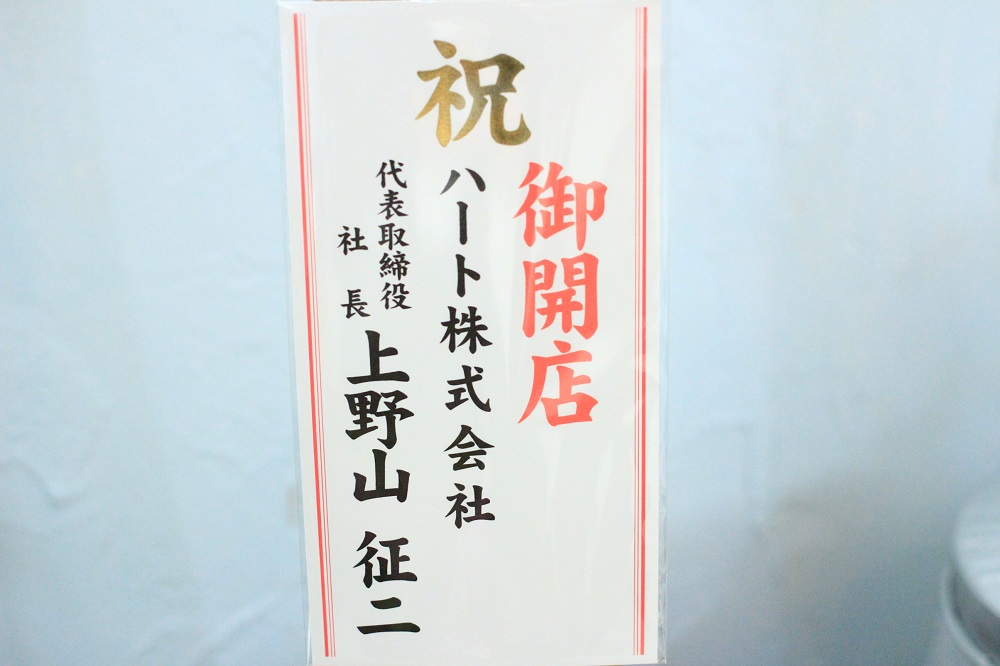 祝
御開店
ハート株式会社
代表取締役
社長
上野山 征二